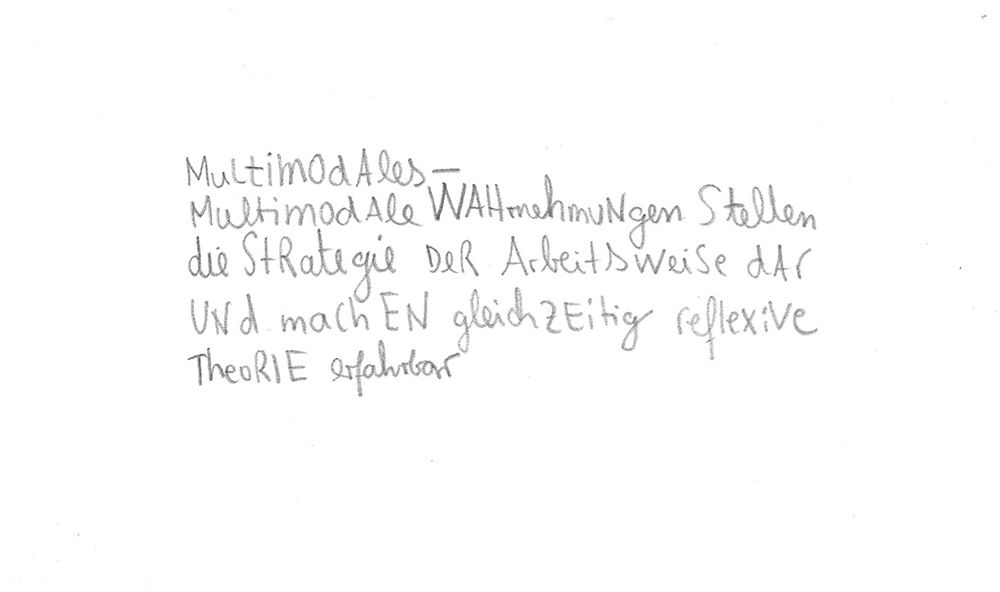 MultimodAles–
MultimodAle WAHrnehmuNgen Stellen
die StRategie DeR ArbeitsweiSe dAr
UNd machEN gleichZEitig reflexive
TheoRIE erfahrbar